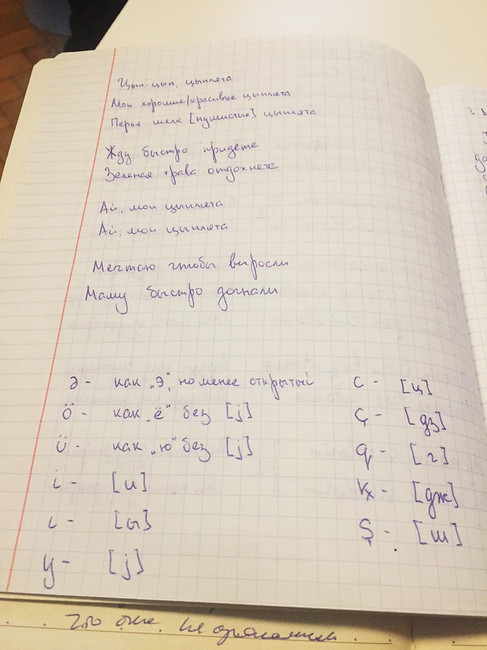 Цып-цып, цыплята
Мои хорошие/красивые цыплята
Перья шелк [пушистые] цыплята
Жду быстро придете
Зеленая трава отдохнете
Ай, мои цыплята
Ай, мои цыплята
Мечтаю чтобы выросли
Маму быстро догнали
ә - как „э“, но менее открытый
ö - как „ё“ без [j]
ü - как „ю“ без [j]
i - [и]
ı - [ы]
y - [j]
c - [ц]
ç - [дз]
q - [г]
ҡ - [дж]
ş - [ш]